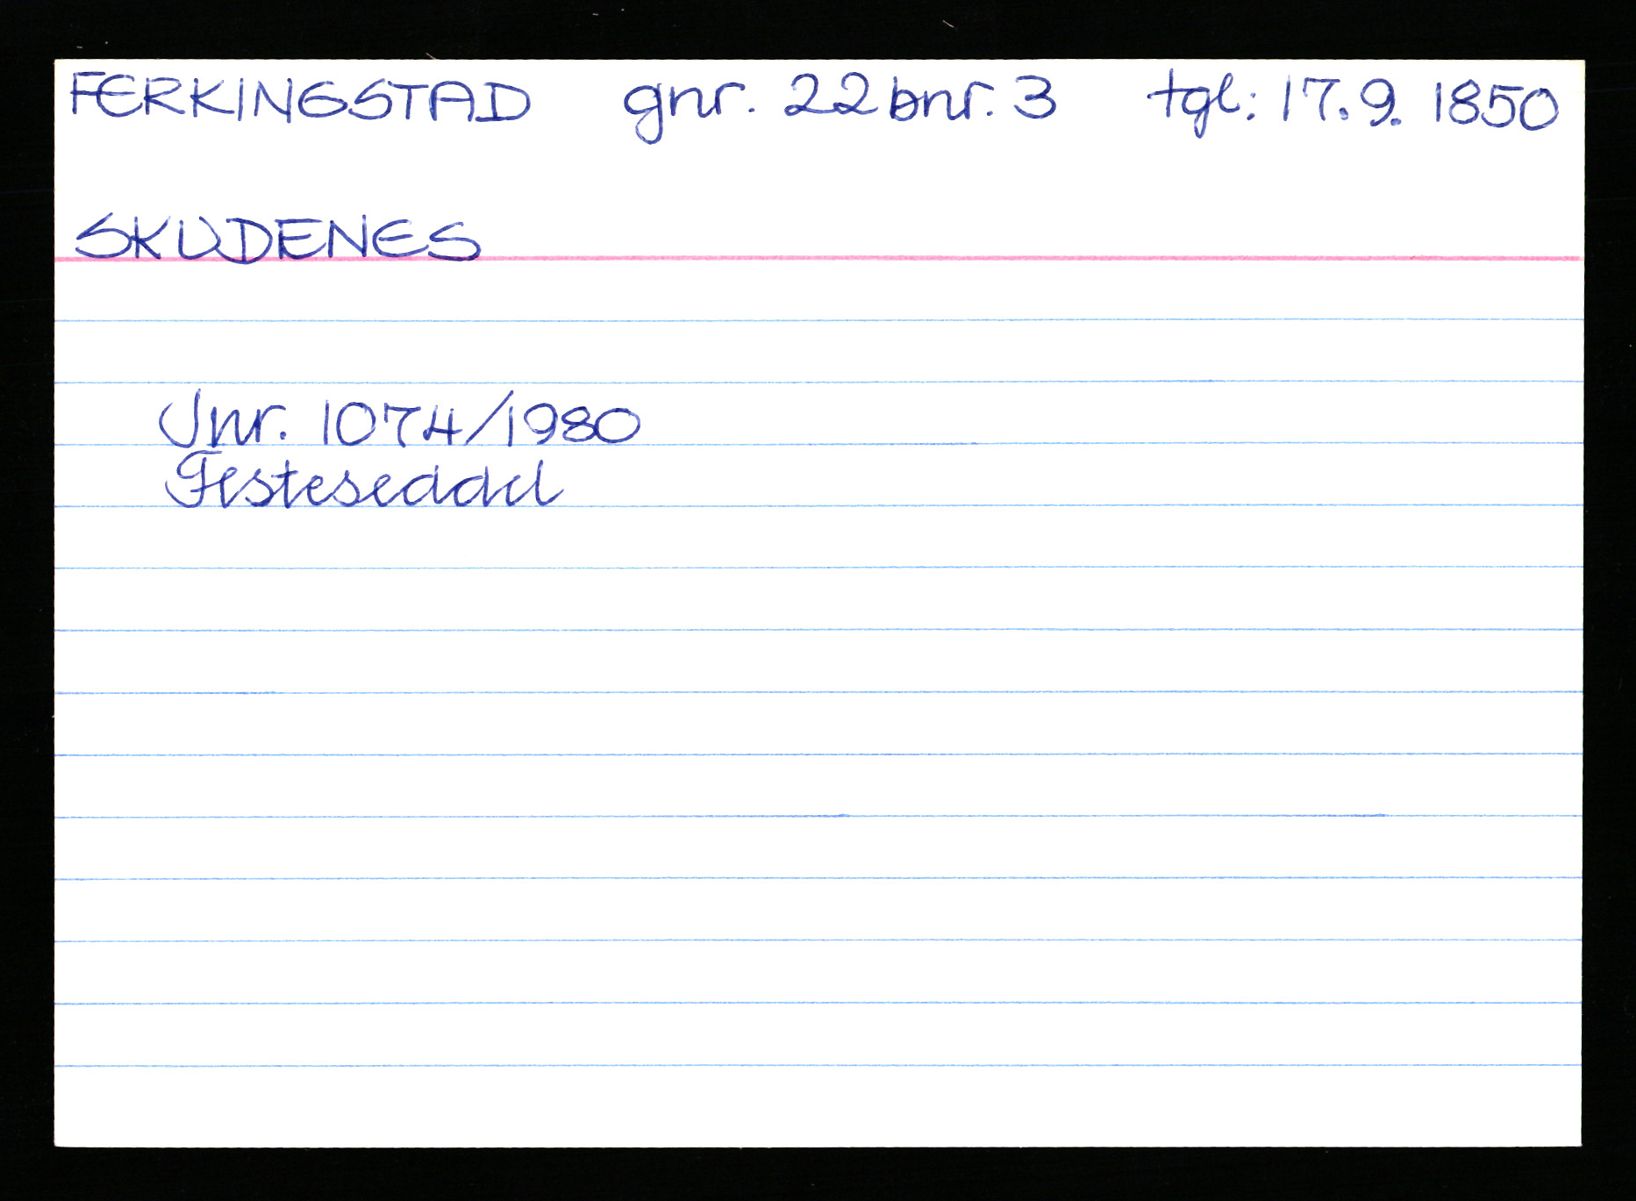 FERKINGSTAD gnr. 22 bnr. 3 tgl: 17.9. 1850
SKUDENES
Jnr. 1074/1980
Festeseddel